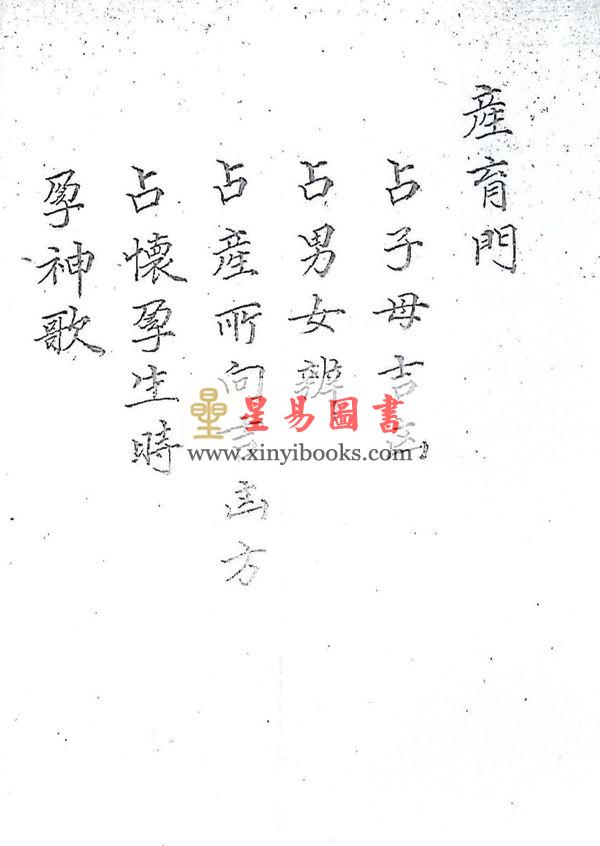 産育門
占子母吉凶
占男女辨
占産所向吉凶方
占懷孕生時
孕神歌
星易圖書
www.xinyibooks.com